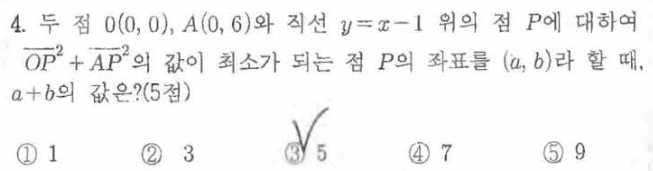 4. 두 점 O(0, 0), A(0, 6)와 직선 y=x-1 위의 점 P에 대하여
OP² + AP²의 값이 최소가 되는 점 P의 좌표를 (a, b)라 할 때,
a+b의 값은?(5점)
① 1 ② 3 ③ 5 ④ 7 ⑤ 9